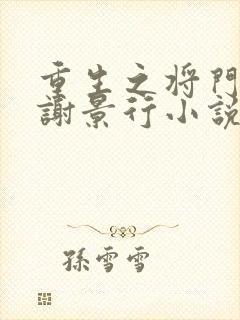 重生之将門
謝景行小説
孫雪雪